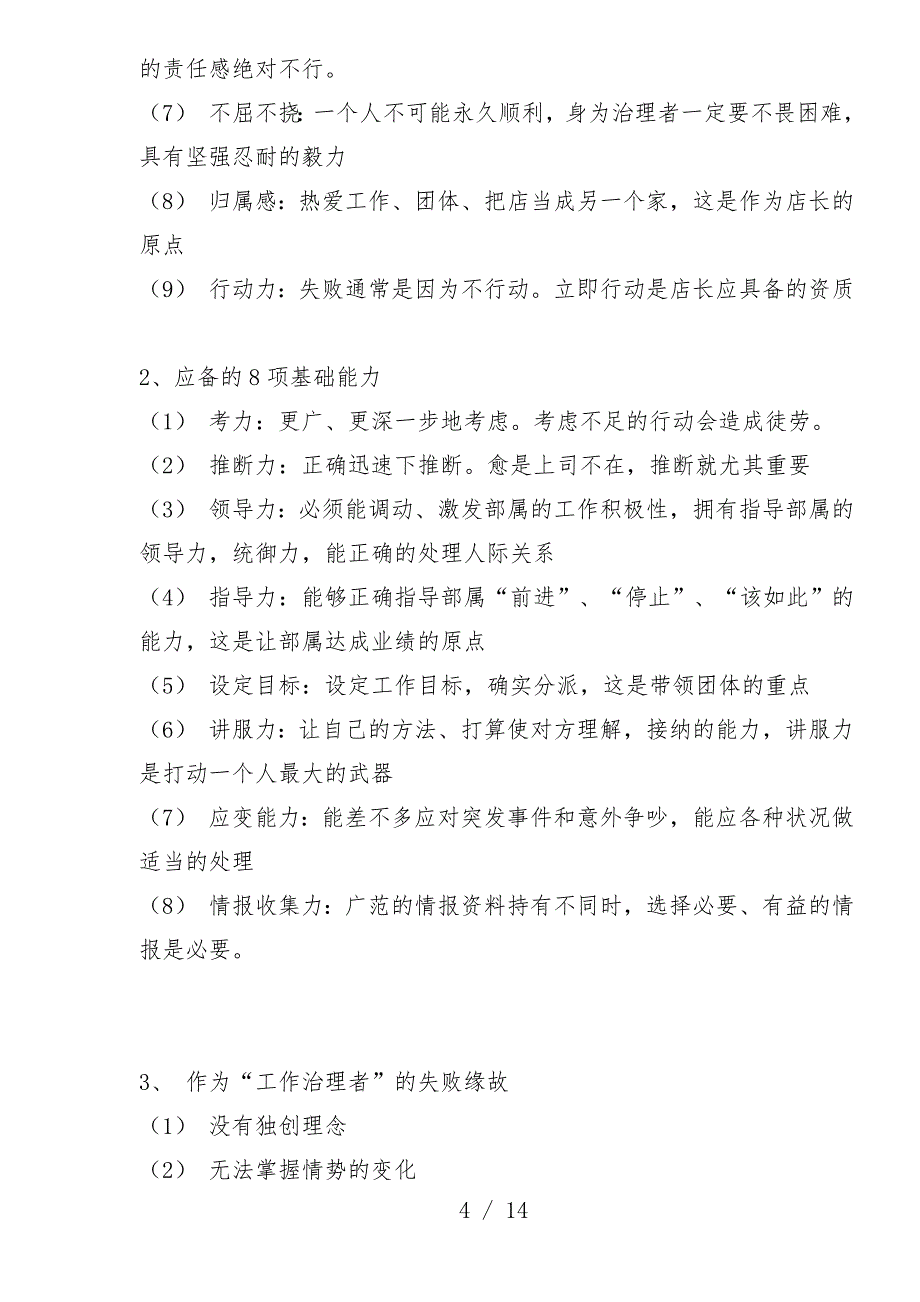 的责任感绝对不行。
（7） 不屈不挠：一个人不可能永久顺利，身为治理者一定要不畏困难，
具有坚强忍耐的毅力
（8） 归属感：热爱工作、团体、把店当成另一个家，这是作为店长的
原点
（9） 行动力：失败通常是因为不行动。立即行动是店长应具备的资质
2、应备的8项基础能力
（1） 考力：更广、更深一步地考虑。考虑不足的行动会造成徒劳。
（2） 推断力：正确迅速下推断。愈是上司不在，推断就尤其重要
（3） 领导力：必须能调动、激发部属的工作积极性，拥有指导部属的
领导力，统御力，能正确的处理人际关系
（4） 指导力：能够正确指导部属“前进”、“停止”、“该如此”的
能力，这是让部属达成业绩的原点
（5） 设定目标：设定工作目标，确实分派，这是带领团体的重点
（6） 讲服力：让自己的方法、打算使对方理解，接纳的能力，讲服力
是打动一个人最大的武器
（7） 应变能力：能差不多应对突发事件和意外争吵，能应各种状况做
适当的处理
（8） 情报收集力：广范的情报资料持有不同时，选择必要、有益的情
报是必要。
3、 作为“工作治理者”的失败缘故
（1） 没有独创理念
（2） 无法掌握情势的变化
4 / 14